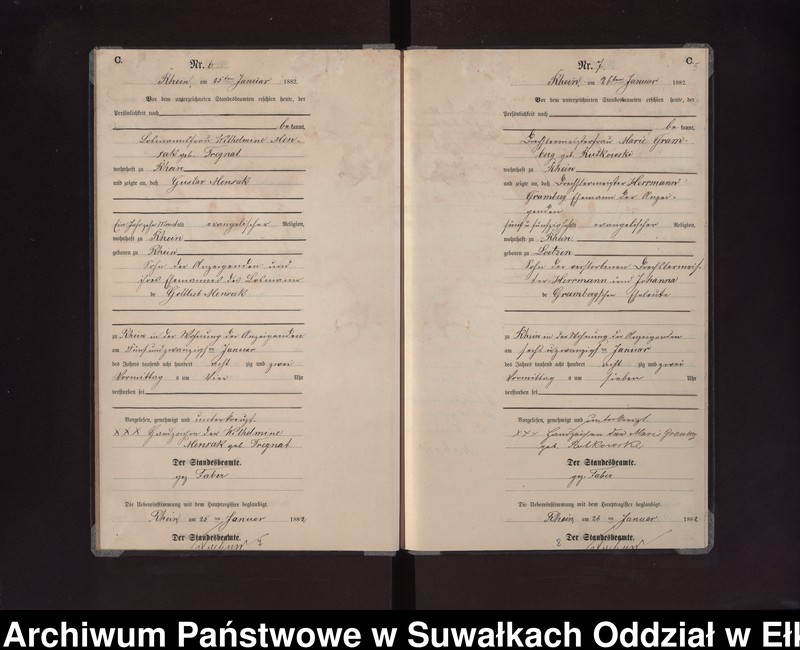 C.
Nr. 6
Rhein, am 25ten Januar 1882.
Vor dem unterzeichneten Standesbeamten erschien heute, der
Persönlichkeit nach
be kannt,
Losmannsfrau Wilhelmine Men-
sak geb. Tregnat
wohnhaft zu Rhein
und zeigte an, daß Gustav Mensak
evangelischer Religion,
wohnhaft zu Rhein
geboren zu Rhein
Sohn der Anzeigenden und
ihres Ehemannes des Losmann
Gottlieb Mensak
zu Rhein in der Wohnung der Anzeigenden
am Fünfundzwanzigsten Januar
des Jahres tausend acht hundert acht zig und zwei
Vormittag s um Vier Uhr
verstorben sei
Vorgelesen, genehmigt und unterkreuzt.
XXX Handzeichen der Wilhelmine
Mensak geb. Tregnat
Der Standesbeamte.
gez. Faber
Die Uebereinstimmung mit dem Hauptregister beglaubigt.
Rhein am 25 ten Januar 1882
Der Standesbeamte.
C.
Nr. 7
Rhein, am 26ten Januar 1882
Vor dem unterzeichneten Standesbeamten erschien heute, der
Persönlichkeit nach
be kannt,
Drechslermeisterfrau Marie Gram-
berg geb. Rutkowski
wohnhaft zu Rhein
und zeigte an, daß Drechslermeister Herrmann
Gramberg Ehemann der Anzei-
genden
evangelischer Religion,
wohnhaft zu Rhein
geboren zu Loetzen
Sohn der verstorbenen Drechslermeis-
ter Herrmann und Johanna
Gramberg'schen Eheleute
zu Rhein in der Wohnung der Anzeigenden
am sechsundzwanzigsten Januar
des Jahres tausend acht hundert acht zig und zwei
Vormittag s um Sieben Uhr
verstorben sei
Vorgelesen, genehmigt und unterkreuzt.
XXX Handzeichen der Marie Gramberg
geb. Rutkowski
Der Standesbeamte.
gez. Faber
Die Uebereinstimmung mit dem Hauptregister beglaubigt.
Rhein am 26 ten Januar 1882
Der Standesbeamte.
8
Archiwum Państwowe w Suwałkach Oddział w Ełk